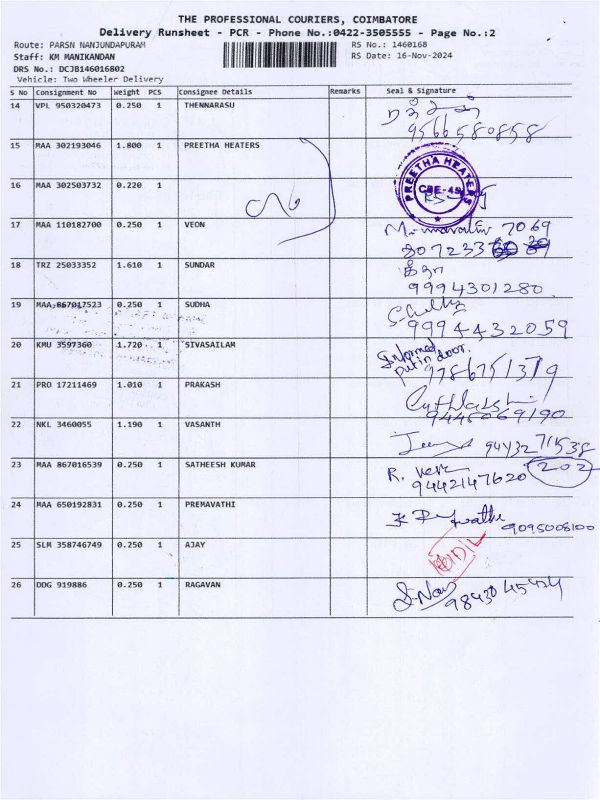 THE PROFESSIONAL COURIERS, COIMBATORE
Delivery Runsheet - PCR - Phone No.:0422-3505555 - Page No.:2
Route: PARSN NANJUNDAPURAM RS No.: 1460168
Staff: KM MANIKANDAN RS Date: 16-Nov-2024
DRS No.: DCJB146016802
Vehicle: Two Wheeler Delivery
S No Consignment No Weight PCS Consignee Details Remarks Seal & Signature
14 VPL 950320473 0.250 1 THENNARASU
9566580858
15 MAA 302193046 1.800 1 PREETHA HEATERS
PREETHA HEATERS
CBE-45
16 MAA 302503732 0.220 1
17 MAA 110182700 0.250 1 VEON
7069
18 TRZ 25033352 1.610 1 SUNDAR
9994301280
19 MAA 867017523 0.250 1 SUDHA
9994432059
20 KMU 3597360 1.720 1 SIVASAILAM Informed
Put in door.
9786751379
21 PRO 17211469 1.010 1 PRAKASH
9445069190
22 NKL 3460055 1.190 1 VASANTH
23 MAA 867016539 0.250 1 SATHEESH KUMAR R. 202
9442147620
24 MAA 650192831 0.250 1 PREMAVATHI
9095008100
25 SLM 358746749 0.250 1 AJAY
26 DDG 919886 0.250 1 RAGAVAN